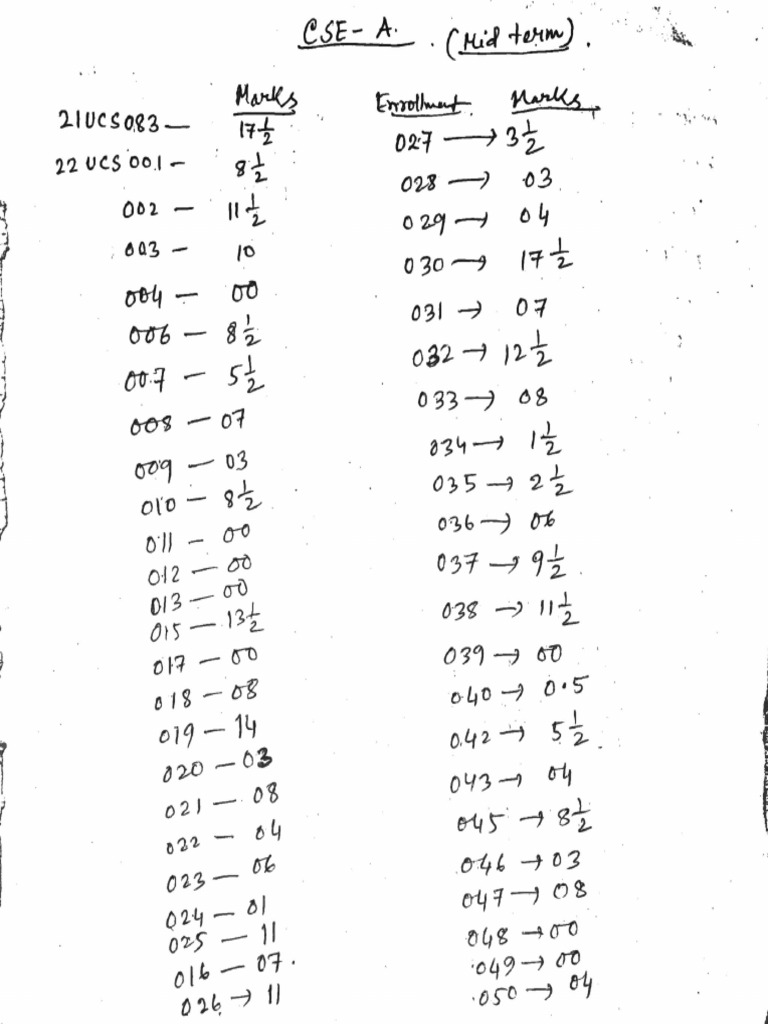 CSE-A. (Mid term).
Marks
21UCS083 — 17 1/2
22UCS001 - 8 1/2
002 — 11 1/2
003 — 10
004 — 00
006 — 8 1/2
007 — 5 1/2
008 — 07
009 — 03
010 — 8 1/2
011 — 00
012 — 00
013 — 00
015 — 13 1/2
017 — 00
018 — 08
019 — 14
020 — 03
021 — 08
022 — 04
023 — 06
024 — 01
025 — 11
016 — 07.
026 → 11
Enrollment. Marks.
027 → 3 1/2
028 → 03
029 → 04
030 → 17 1/2
031 → 07
032 → 12 1/2
033 → 08
034 → 1 1/2
035 → 2 1/2
036 → 06
037 → 9 1/2
038 → 11 1/2
039 → 00
040 → 0.5
042 → 5 1/2
043 → 04
045 → 8 1/2
046 → 03
047 → 08
048 → 00
049 → 00
050 → 04